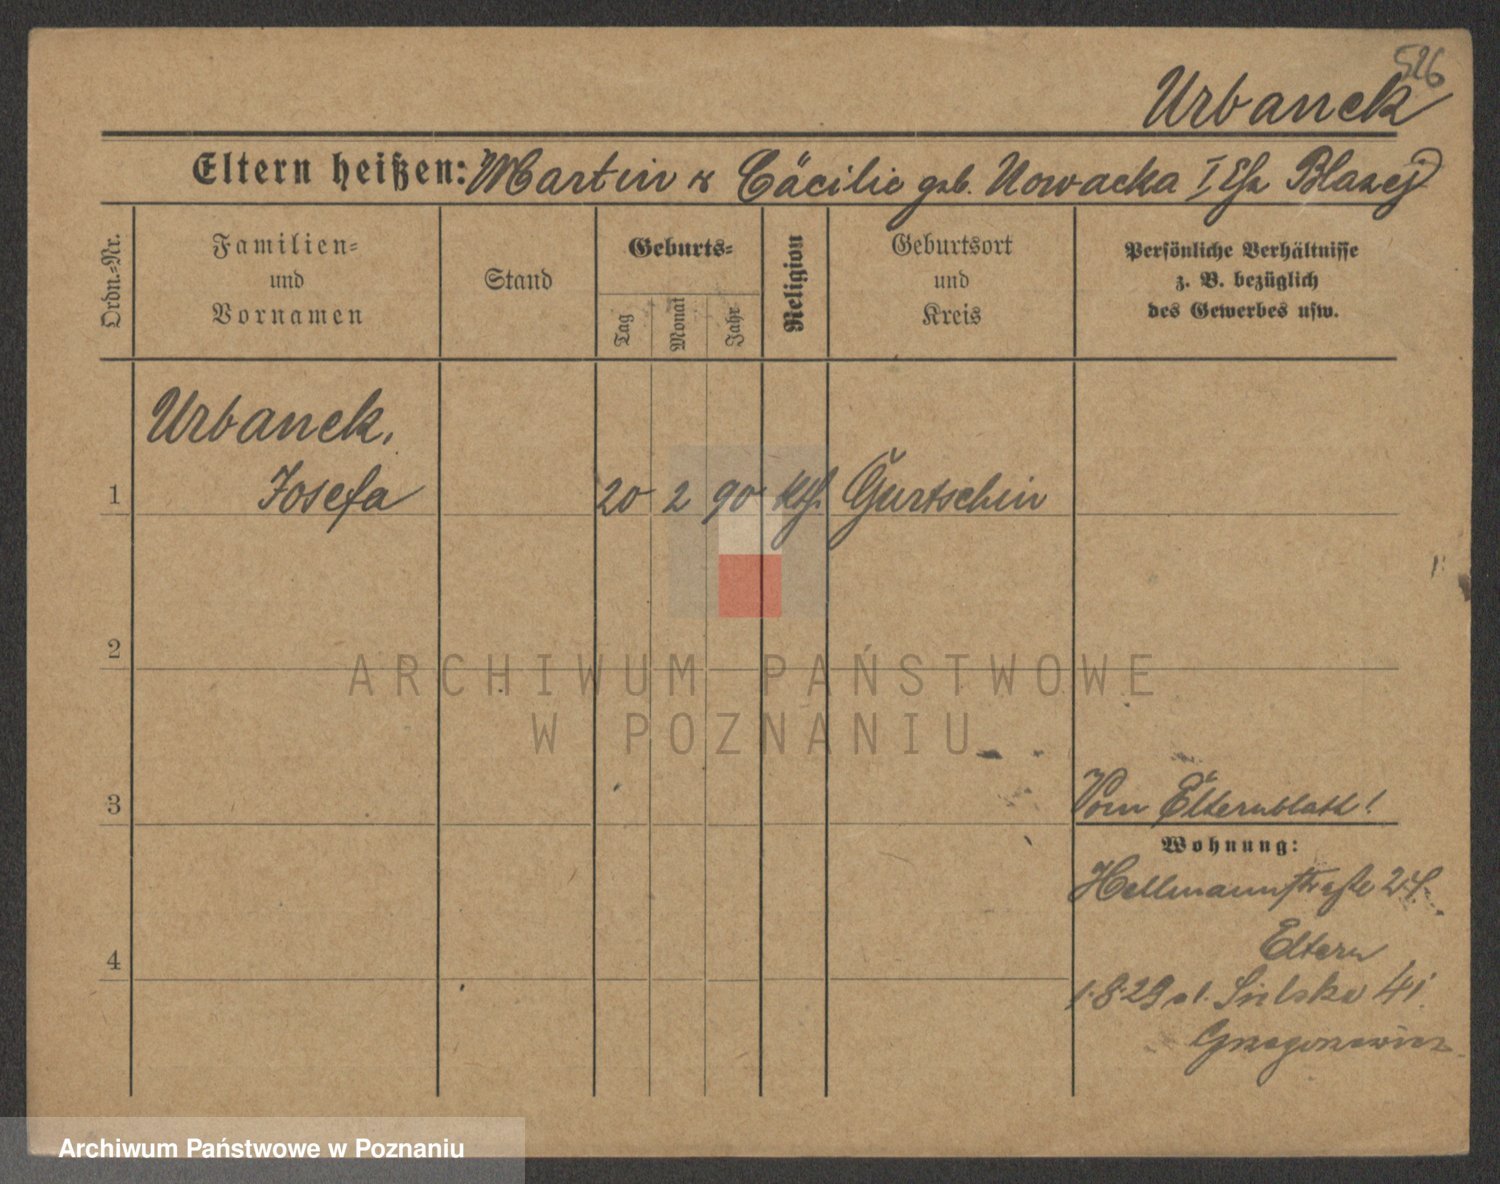 526
Urbanek
Eltern heißen: Martin & Cäcilie geb. Nowacka I Ehe Blazej
Ordn.-Nr.
Familien-
und
Vornamen
Stand
Geburts-
Tag
Monat
Jahr
Religion
Geburtsort
und
Kreis
Persönliche Verhältnisse
z. B. bezüglich
des Gewerbes usw.
Urbanek,
1 Josefa 20 2 90 kth. Gurtschin
2
ARCHIWUM PAŃSTWOWE
W POZNANIU
3
Vom Elternblatt!
Wohnung:
Hellmannstraße 24
4
Eltern
1.8.29 ul. Sielska 41
Archiwum Państwowe w Poznaniu